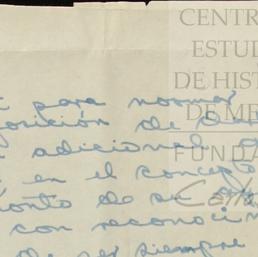 CENTR
ESTUDI
DE HIST
DE ME
FUNDA
para normar
posición de
adicional
en el concepto
onto de su
con reconoci
de ser siempre